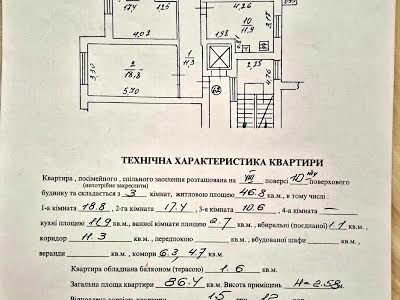 17,4 125
4,26
10
11,9
3,17
4,02
1,98
1
11,3
2
18,8
3,30
5,70
2,25
4,76
ТЕХНІЧНА ХАРАКТЕРИСТИКА КВАРТИРИ
Квартира , посімейного , спільного заселення розташована на VIII поверсі 10 поверхового
(непотрібне закреслити)
будинку та складається з 3 кімнат, житловою площею 46.8 кв.м , в тому числі :
1-а кімната 18.8 , 2-га кімната 17.4 , 3-я кімната 10.6 , 4-а кімната
кухні площею 11,9 кв.м, ванної кімнати площею 2.7 кв.м , вбиральні (поєднаної) 1.1 кв.м ,
коридор 11.3 кв.м , передпокою кв.м , вбудованої шафи кв.м ,
веранди кв.м , комори 6.3, 4.7 кв.м.
Квартира обладнана балконом (терасою) 1.6 кв.м.
Загальна площа квартири 86.4 кв.м Висота приміщень H=2.58
15 12